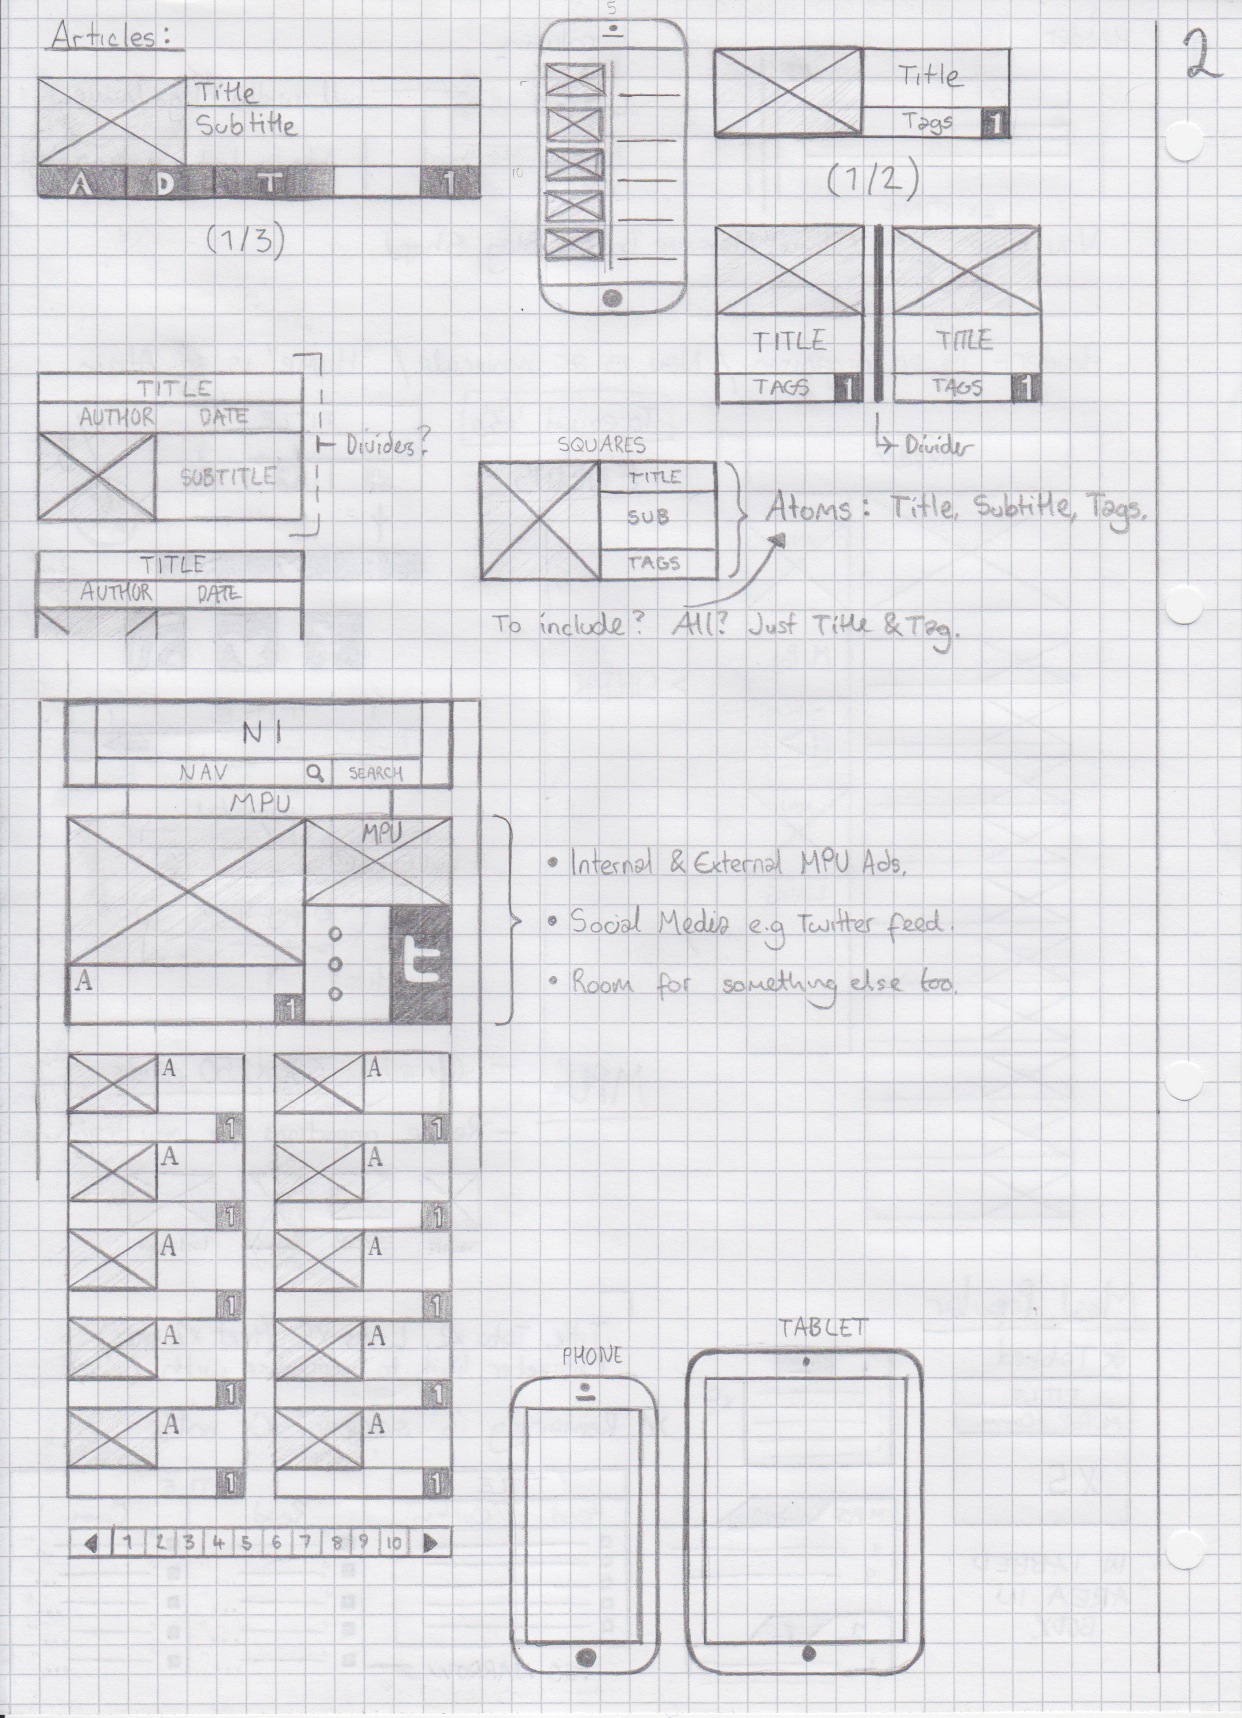 Articles:
2
5
Title
Subtitle
A D T 1
(1/3)
10
Title
Tags 1
(1/2)
TITLE
TAGS 1
TITLE
TAGS 1
Divider
TITLE
AUTHOR DATE
SUBTITLE
Divides?
TITLE
AUTHOR DATE
SQUARES
TITLE
SUB
TAGS
Atoms: Title, Subtitle, Tags.
To include? All? Just Title & Tag.
NI
NAV SEARCH
MPU
MPU
A
1
t
• Internal & External MPU Ads.
• Social Media e.g Twitter feed.
• Room for something else too.
A A
1 1
A A
1 1
A A
1 1
A A
1 1
A A
1 1
1 2 3 4 5 6 7 8 9 10
PHONE
TABLET